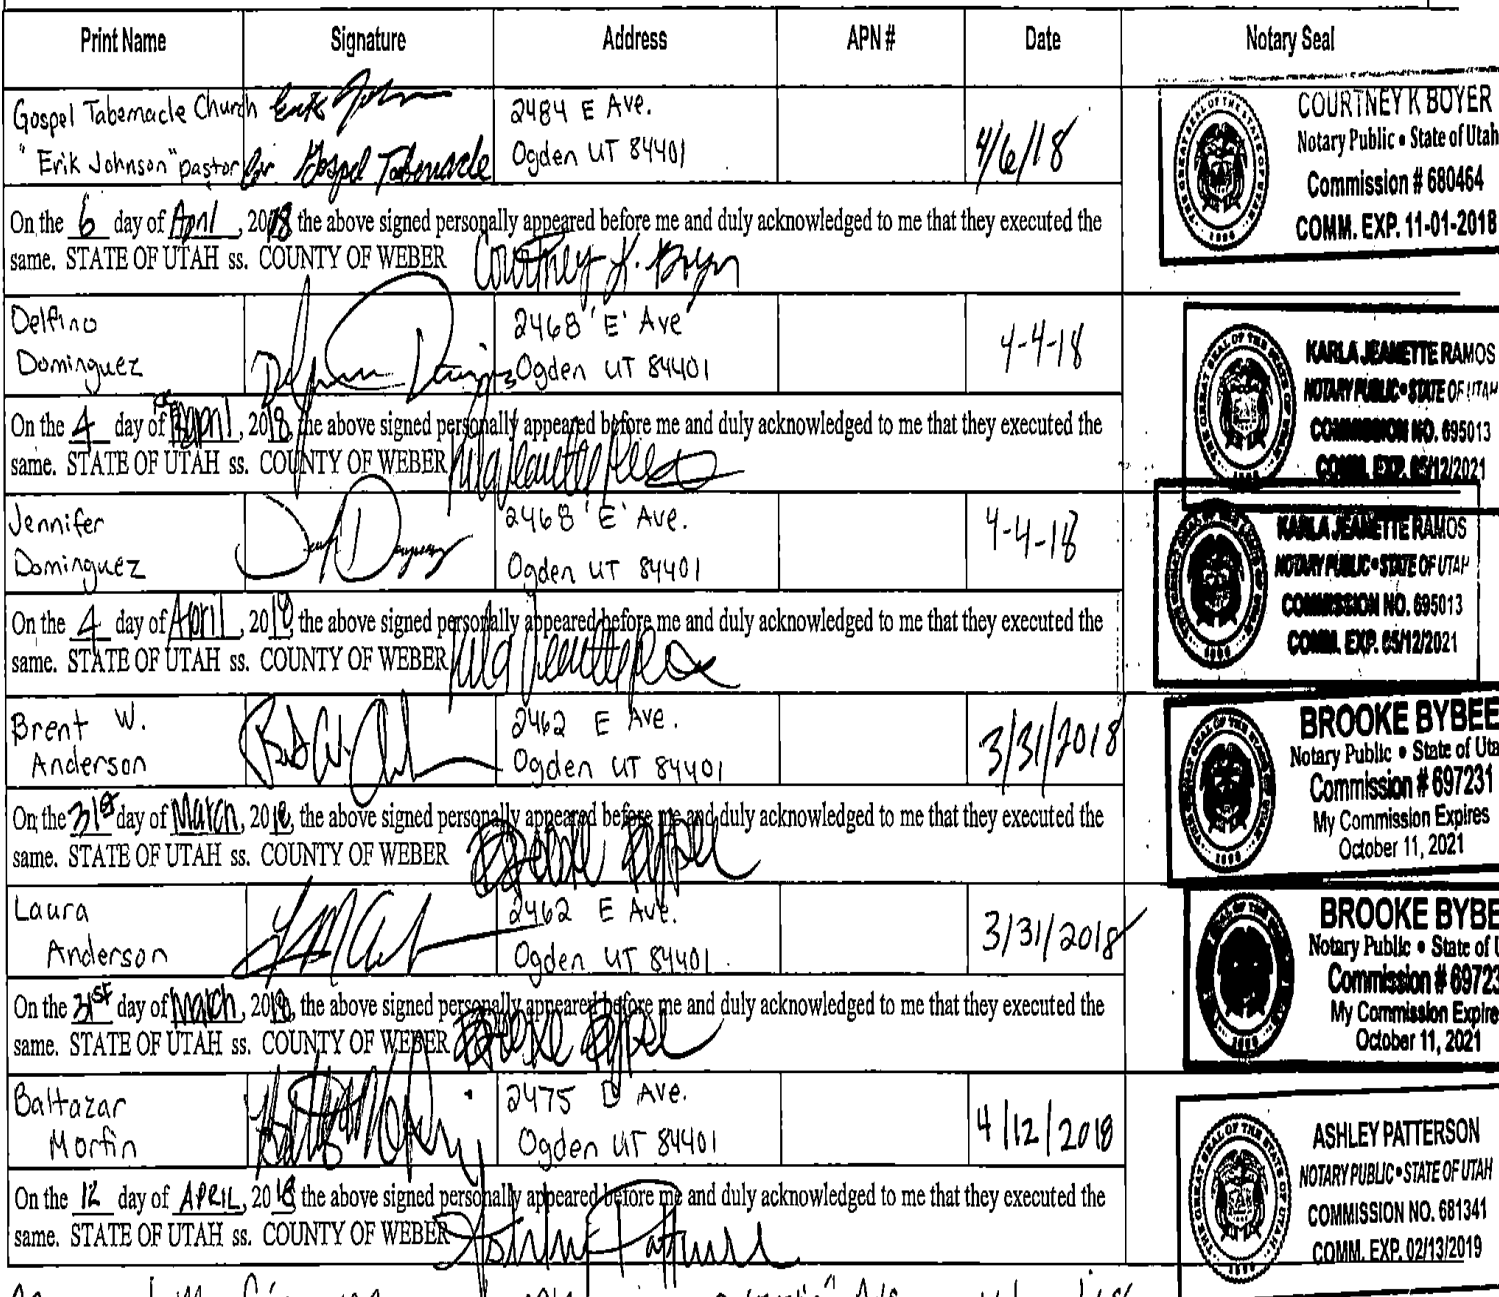 Print Name Signature Address APN # Date Notary Seal
Gospel Tabernacle Church Erik John 2484 E Ave.
"Erik Johnson" pastor for Gospel Tabernacle Ogden UT 84401 4/6/18
COURTNEY K BOYER
Notary Public • State of Utah
Commission # 680464
COMM. EXP. 11-01-2018
On the 6 day of April, 2018 the above signed personally appeared before me and duly acknowledged to me that they executed the
same. STATE OF UTAH ss. COUNTY OF WEBER Courtney K. Boyer
Delfino 2468 'E' Ave
Dominguez Ogden UT 84401 4-4-18
KARLA JEANETTE RAMOS
NOTARY PUBLIC • STATE OF UTAH
COMMISSION NO. 695013
COMM. EXP. 05/12/2021
On the 4 day of April, 2018, the above signed personally appeared before me and duly acknowledged to me that they executed the
same. STATE OF UTAH ss. COUNTY OF WEBER
Jennifer 2468 'E' Ave.
Dominguez Ogden UT 84401 4-4-18
KARLA JEANETTE RAMOS
NOTARY PUBLIC • STATE OF UTAH
COMMISSION NO. 695013
COMM. EXP. 05/12/2021
On the 4 day of April, 2018, the above signed personally appeared before me and duly acknowledged to me that they executed the
same. STATE OF UTAH ss. COUNTY OF WEBER
Brent W. 2462 E Ave.
Anderson Ogden UT 84401 3/31/2018
BROOKE BYBEE
Notary Public • State of Uta
Commission # 697231
My Commission Expires
October 11, 2021
On the 31st day of March, 2018, the above signed personally appeared before me and duly acknowledged to me that they executed the
same. STATE OF UTAH ss. COUNTY OF WEBER
Laura 2462 E Ave.
Anderson Ogden UT 84401 3/31/2018
BROOKE BYBE
Notary Public • State of U
Commission # 69723
My Commission Expire
October 11, 2021
On the 31st day of March, 2018, the above signed personally appeared before me and duly acknowledged to me that they executed the
same. STATE OF UTAH ss. COUNTY OF WEBER
Baltazar 2475 D Ave.
Morfin Ogden UT 84401 4/12/2018
ASHLEY PATTERSON
NOTARY PUBLIC • STATE OF UTAH
COMMISSION NO. 681341
COMM. EXP. 02/13/2019
On the 12 day of APRIL, 2018 the above signed personally appeared before me and duly acknowledged to me that they executed the
same. STATE OF UTAH ss. COUNTY OF WEBER